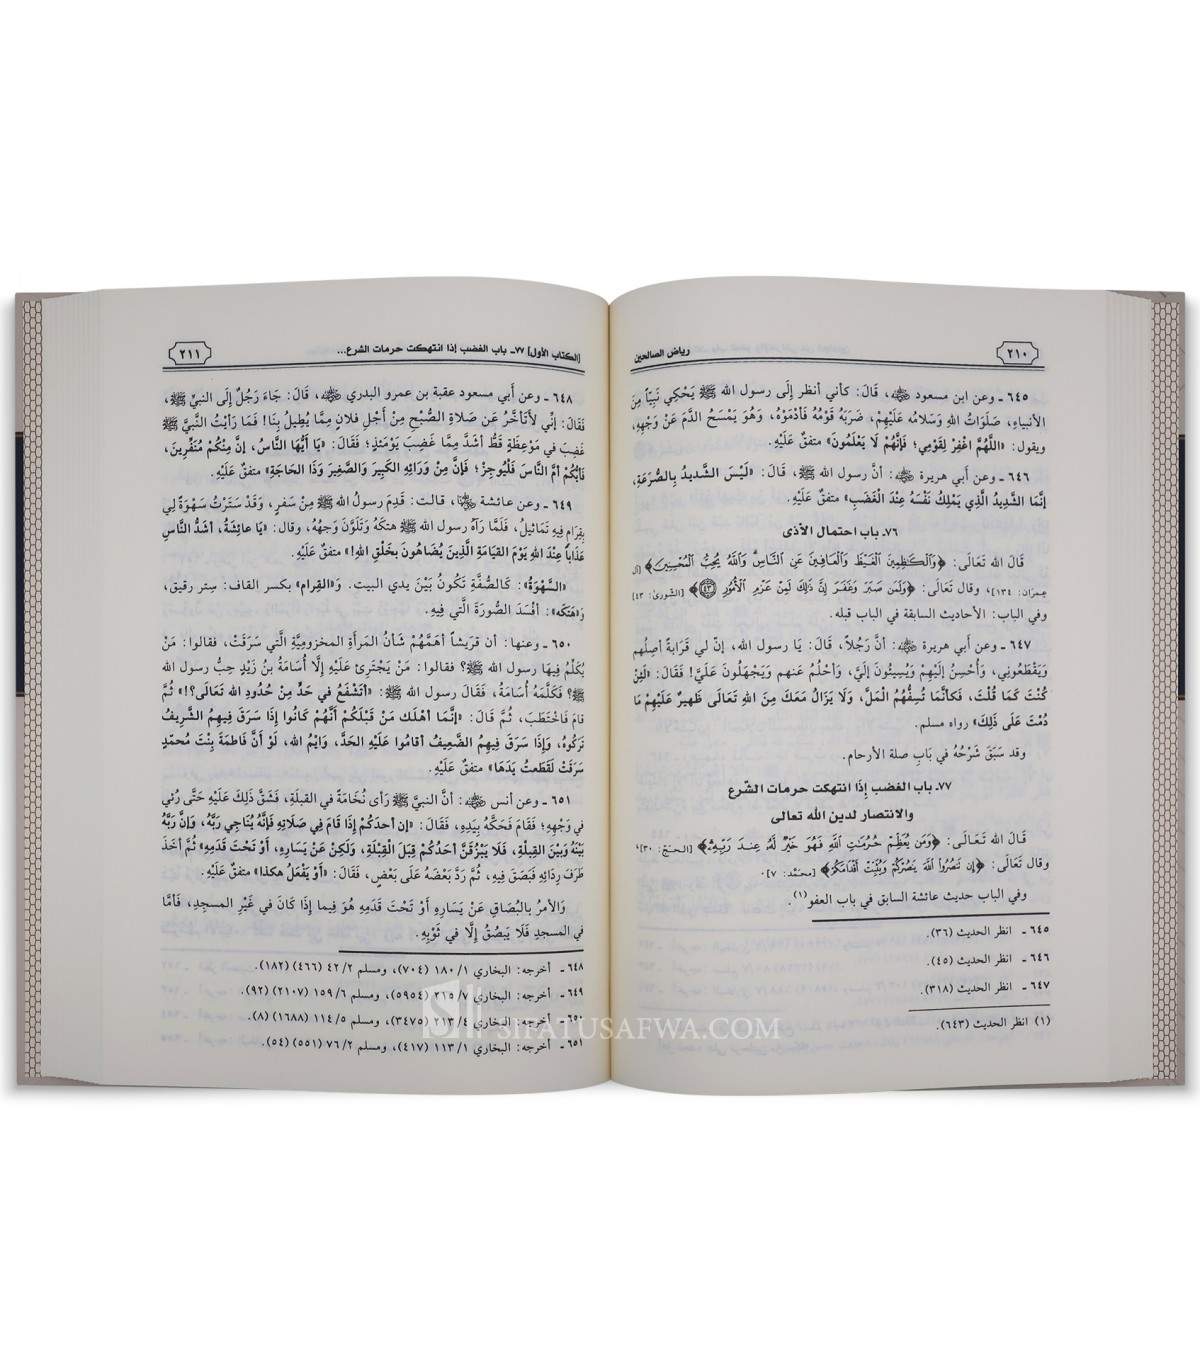 رياض الصالحين
٢١٠
٦٤٥ ـ وعن ابن مسعود ﷺ، قَالَ: كأني أنظر إلَى رسول الله ﷺ يَحْكِي نَبِيّاً مِنَ
الأنبياءِ، صَلَوَاتُ اللهِ وَسَلامُه عَلَيْهِمْ، ضَرَبَهُ قَوْمُهُ فَأدْمَوْهُ، وَهُوَ يَمْسَحُ الدَّمَ عَنْ وَجْهِهِ،
ويقول: «اللَّهُمَّ اغْفِرْ لِقَوْمِي؛ فَإنَّهُمْ لَا يَعْلَمُونَ» متفقٌ عَلَيْهِ.
٦٤٦ ـ وعن أَبي هريرة ﷺ: أنَّ رسول الله ﷺ، قَالَ: «لَيْسَ الشَّديدُ بِالصُّرَعَةِ،
إنَّمَا الشَّديدُ الَّذِي يَمْلِكُ نَفْسَهُ عِنْدَ الْغَضَبِ» متفقٌ عَلَيْهِ.
٧٦ـ باب احتمال الأذى
قَالَ الله تَعَالَى: ﴿وَالْكَاظِمِينَ الْغَيْظَ وَالْعَافِينَ عَنِ النَّاسِ وَاللَّهُ يُحِبُّ الْمُحْسِنِينَ﴾ [آل
عِمرَان: ١٣٤]، وقال تَعَالَى: ﴿وَلَمَن صَبَرَ وَغَفَرَ إِنَّ ذَلِكَ لَمِنْ عَزْمِ الْأُمُورِ ٤٣﴾ [الشورى: ٤٣]
وفي الباب: الأحاديث السابقة في الباب قبله.
٦٤٧ ـ وعن أَبي هريرة ﷺ: أنَّ رَجُلاً، قَالَ: يَا رسول الله، إنّ لي قَرَابةً أصِلُهم
وَيَقْطَعُوني، وَأُحْسِنُ إلَيْهِمْ وَيُسِيئُونَ إلَيَّ، وَأحْلُمُ عَنهم وَيَجْهَلُونَ عَلَيَّ! فَقَالَ: «لَئِنْ
كُنْتَ كَمَا قُلْتَ، فَكأنَّمَا تُسِفُّهُمُ الْمَلَّ، وَلَا يَزَالُ مَعَكَ مِنَ اللهِ تَعَالَى ظَهيرٌ عَلَيْهِمْ مَا
دُمْتَ عَلَى ذَلِكَ» رواه مسلم.
وقد سَبَقَ شَرْحُهُ في بَابِ صلة الأرحام.
٧٧ـ باب الغضب إِذَا انتهكت حرمات الشّرع
والانتصار لدين الله تعالى
قَالَ الله تَعَالَى: ﴿وَمَن يُعَظِّمْ حُرُمَاتِ اللَّهِ فَهُوَ خَيْرٌ لَّهُ عِندَ رَبِّهِ﴾ [الحج: ٣٠]،
وقال تَعَالَى: ﴿إِن تَنصُرُوا اللَّهَ يَنصُرْكُمْ وَيُثَبِّتْ أَقْدَامَكُمْ﴾ [محمَّد: ٧].
وفي الباب حديث عائشة السابق في باب العفو(١).
٦٤٥ ـ انظر الحديث (٣٦).
٦٤٦ ـ انظر الحديث (٤٥).
٦٤٧ ـ انظر الحديث (٣١٨).
(١) انظر الحديث (٦٤٣).
[الكتاب الأول] ٧٧ـ باب الغضب إذا انتهكت حرمات الشرع...
٢١١
٦٤٨ ـ وعن أَبي مسعود عقبة بن عمرو البدري ﷺ، قَالَ: جَاءَ رَجُلٌ إلَى النبيِّ ﷺ،
فَقَالَ: إنِّي لأَتَأخَّرُ عَن صَلاةِ الصُّبْحِ مِنْ أَجْلِ فلانٍ مِمَّا يُطِيلُ بِنَا! فَمَا رَأيْتُ النَّبيَّ ﷺ
غَضِبَ في مَوْعِظَةٍ قَطُّ أشَدَّ مِمَّا غَضِبَ يَوْمَئذٍ؛ فَقَالَ: «يَا أَيُّهَا النَّاسُ، إنَّ مِنْكُمْ مُنَفِّرِينَ،
فَأيُّكُمْ أمَّ النَّاسَ فَلْيُوجِزْ؛ فَإنَّ مِنْ وَرَائِهِ الكَبِيرَ وَالصَّغِيرَ وَذَا الحَاجَةِ» متفقٌ عَلَيْهِ.
٦٤٩ ـ وعن عائشة ﷺ، قالت: قَدِمَ رسولُ الله ﷺ مِنْ سَفرٍ، وَقَدْ سَتَرْتُ سَهْوَةً لِي
بِقِرَامٍ فِيهِ تَمَاثيلُ، فَلَمَّا رَآهُ رسول الله ﷺ هتكَهُ وَتَلَوَّنَ وَجهُهُ، وقال: «يَا عائِشَةُ، أشَدُّ النَّاسِ
عَذَاباً عِنْدَ اللهِ يَوْمَ القيَامَةِ الَّذِينَ يُضَاهُونَ بخَلْقِ اللهِ!» متفقٌ عَلَيْهِ.
«السَّهْوَةُ»: كَالصُّفَّةِ تَكُونُ بَيْنَ يدي البيت. وَ«القِرام» بكسر القاف: سِتر رقيق،
وَ«هَتَكَه»: أفْسَدَ الصُّورَةَ الَّتي فِيهِ.
٦٥٠ ـ وعنها: أن قرَيشاً أهَمَّهُمْ شَأنُ المَرأةِ المخزوميَّةِ الَّتي سَرَقَتْ، فقالوا: مَنْ
يُكَلِّمُ فِيهَا رسول الله ﷺ؟ فقالوا: مَنْ يَجْتَرِئُ عَلَيْهِ إلَّا أُسَامَةُ بنُ زَيْدٍ حِبُّ رسول الله
ﷺ؟ فَكَلَّمَهُ أُسَامَةُ، فَقَالَ رسول الله ﷺ: «أتَشْفَعُ في حَدٍّ مِنْ حُدُودِ الله تَعَالَى؟!» ثُمَّ
قامَ فَاخْتَطَبَ، ثُمَّ قَالَ: «إنَّمَا أَهْلَك مَنْ قَبْلَكُمْ أنَّهُمْ كَانُوا إِذَا سَرَقَ فِيهِمُ الشَّرِيفُ
تَرَكُوهُ، وَإِذَا سَرَقَ فِيهِمُ الضَّعِيفُ أقامُوا عَلَيْهِ الحَدَّ، وَايْمُ الله، لَوْ أَنَّ فَاطمَةَ بِنْتَ مُحمّدٍ
سَرَقَتْ لَقَطَعتُ يَدَهَا» متفقٌ عَلَيْهِ.
٦٥١ ـ وعن أنس ﷺ: أنَّ النبيَّ ﷺ رَأى نُخَامَةً في القبلَةِ، فَشَقَّ ذلكَ عَلَيْهِ حَتَّى رُئِي
في وَجْهِهِ؛ فَقَامَ فَحَكَّهُ بِيَدِهِ، فَقَالَ: «إن أحدَكُمْ إِذَا قَامَ فِي صَلَاتِهِ فَإنَّهُ يُنَاجِي رَبَّهُ، وَإنَّ رَبَّهُ
بَيْنَهُ وَبَيْنَ القِبلَةِ، فَلَا يَبْزُقَنَّ أحَدُكُمْ قِبَلَ الْقِبْلَةِ، وَلَكِنْ عَنْ يَسَارِهِ، أَوْ تَحْتَ قَدَمِهِ» ثُمَّ أخَذَ
طَرَفَ رِدَائِهِ فَبَصَقَ فِيهِ، ثُمَّ رَدَّ بَعْضَهُ عَلَى بَعْضٍ، فَقَالَ: «أَوْ يَفْعَلُ هكَذا» متفقٌ عَلَيْهِ.
وَالأمرُ بالبُصَاقِ عَنْ يَسَارِهِ أَوْ تَحْتَ قَدَمِهِ هُوَ فِيما إِذَا كَانَ في غَيْرِ المسجِدِ، فَأَمَّا
في المسجدِ فَلَا يَبصُقُ إلَّا في ثَوْبِهِ.
٦٤٨ ـ أخرجه: البخاري ١/ ١٨٠ (٧٠٤)، ومسلم ٢/ ٤٢ (٤٦٦) (١٨٢).
٦٤٩ ـ أخرجه: البخاري ٧/ ٢١٥ (٥٩٥٤)، ومسلم ٦/ ١٥٩ (٢١٠٧) (٩٢).
٦٥٠ ـ أخرجه: البخاري ٤/ ٢١٣ (٣٤٧٥)، ومسلم ٥/ ١١٤ (١٦٨٨) (٨).
٦٥١ ـ أخرجه: البخاري ١/ ١١٣ (٤١٧)، ومسلم ٢/ ٧٦ (٥٥١) (٥٤).
SIFATUSAFWA.COM